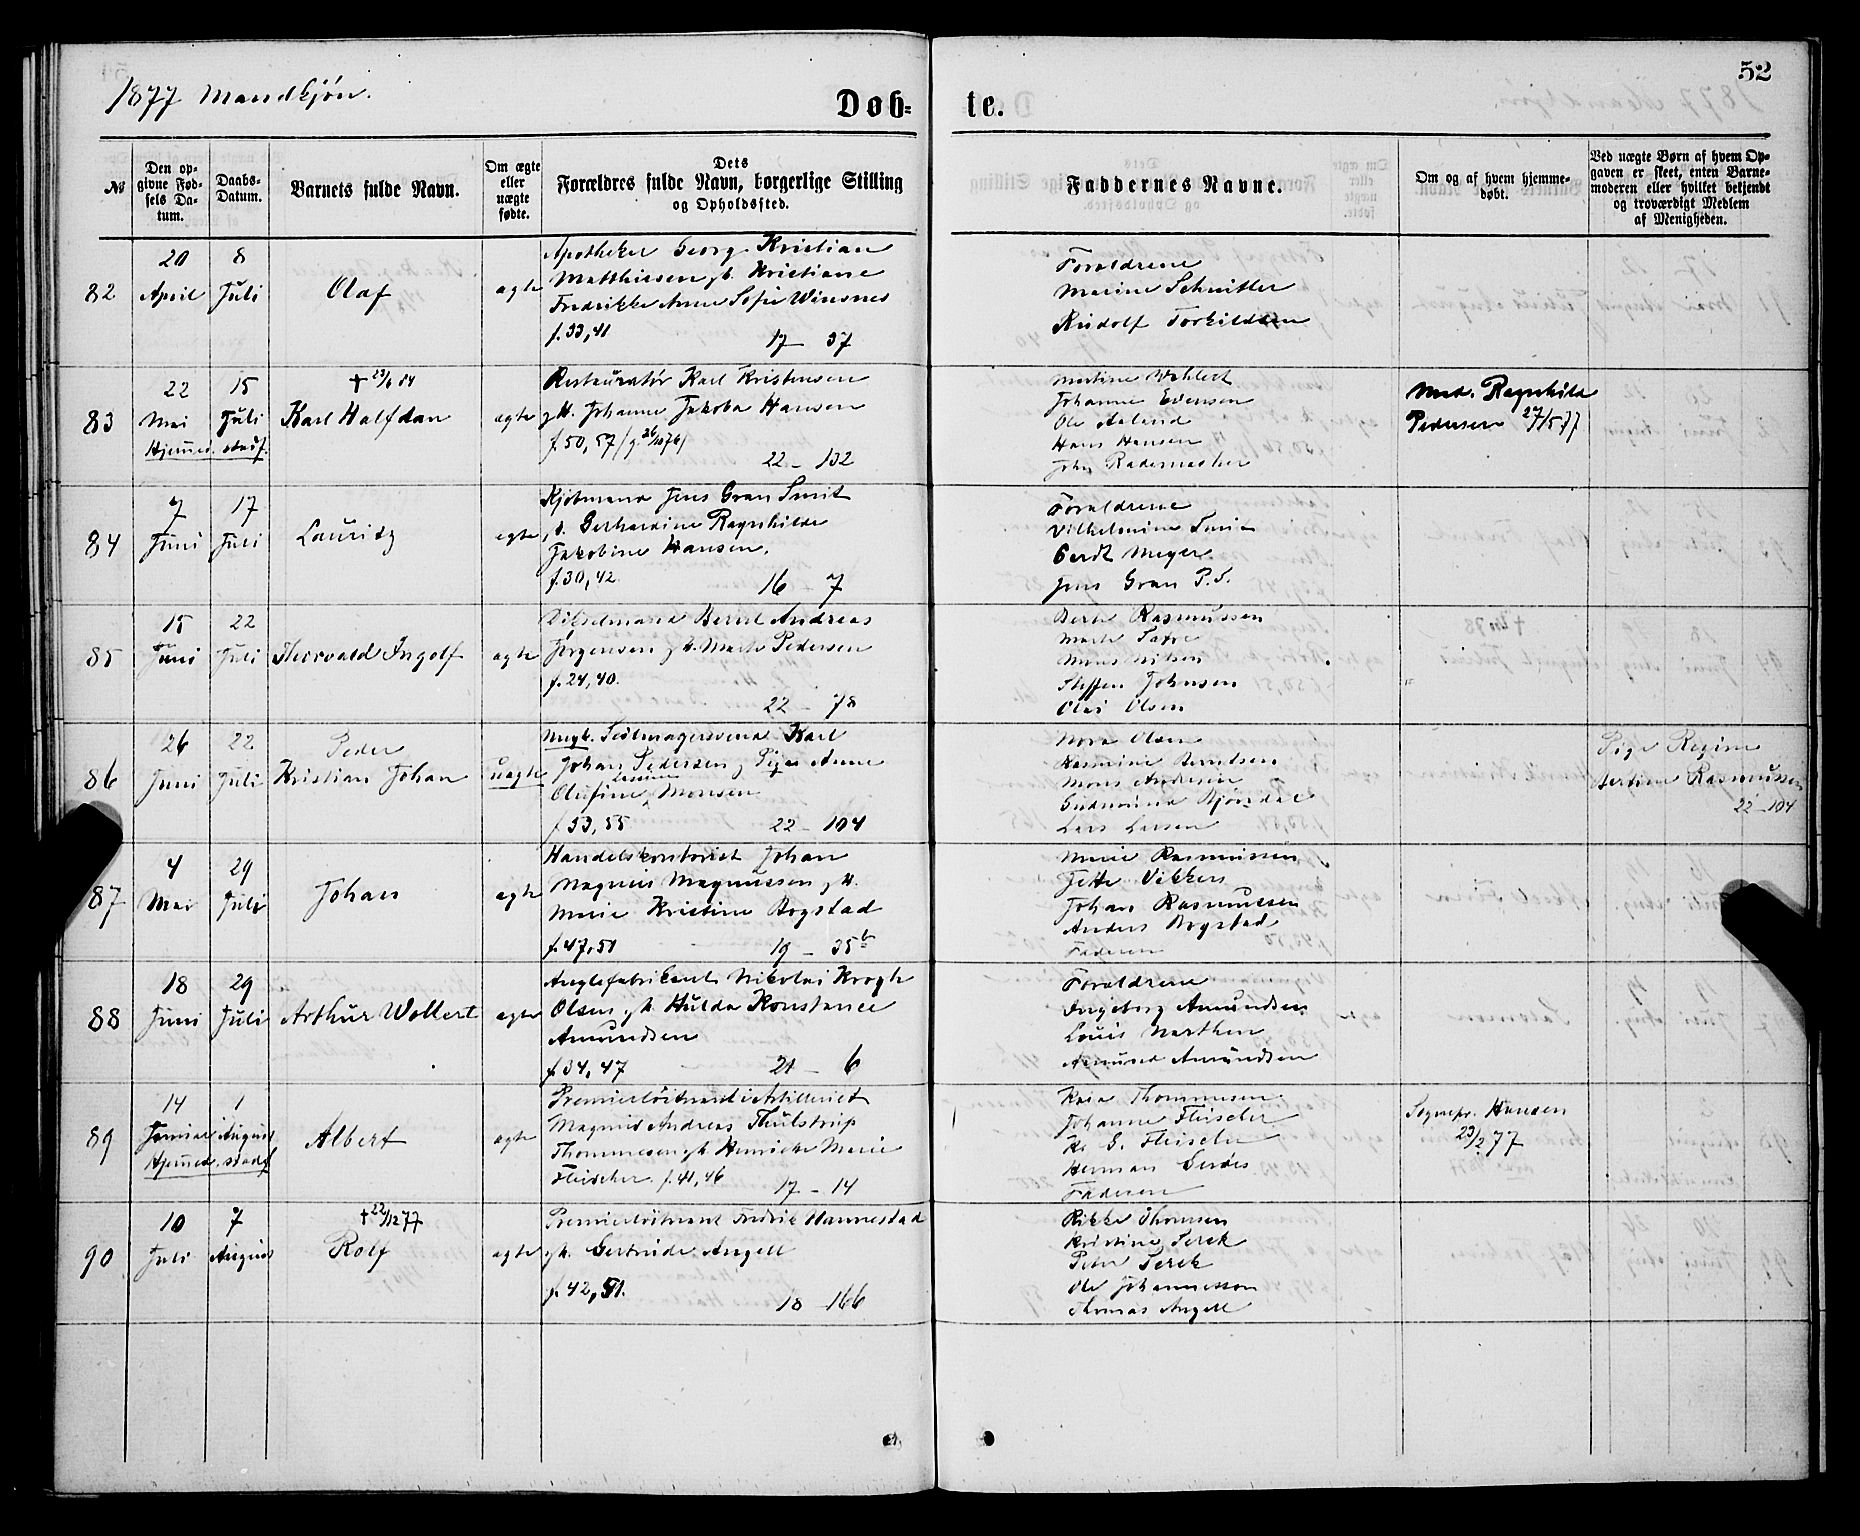 52
1877 Mandkjön.
Døb-te.
№
Den op-
givne Fød-
sels Da-
tum.
Daabs-
Datum.
Barnets fulde Navn.
Om ægte
eller
uægte
fødte.
Dets
Forældres fulde Navn, borgerlige Stilling
og Opholdssted.
Faddernes Navne.
Om og af hvem hjemme-
døbt.
Ved uægte Børn af hvem Op-
gaven er skeet, enten Barne-
moderen eller hvilket bekjendt
og troværdigt Medlem
af Menigheden.
82
20
April
8
Juli
Olaf
ægte
Apotheker Georg Kristian
Matthiesen g. h. Kristiane
Fredrikke Anne Sofie Winsnes
f. 33, 41
17 - 37
Forældrene
Marine Schnitler
Rudolf Torkildsen
83
22
Mai
15
Juli
Hjemmed. stadf.
† 23/6 84
Karl Halfdan
ægte
Restauratör Karl Kristensen
g. H. Johanne Jakoba Hansen
f. 50, 57 / g. 26/10 76 /
22 - 132
Johanne Evensen
Ole Aaland
Hans Hansen
John Rademacher
Mad. Ragnhild
Pedersen 27/5 77
84
7
Juni
17
Juli
Lauritz
ægte
Kjöbmand Jens Gran Smit
Gerhardine Ragnhilde
Jakobine Hansen.
f. 30, 42.
16 - 7
Forældrene
Vilhelmine Smit
Gerdt Meyer
Jens Gran P. S.
85
15
Juni
22
Juli
Thorvald Ingolf
ægte
Berent Andreas
Jörgensen g. h. Marte Pedersen
f. 24, 40.
22 - 78
Berte Rasmussen
Mons Nilsen
Steffen Johnsen
Olai Olsen
86
26
Juni
22
Juli
Peder
Kristian Johan
uægte
Ungk. Seilmagersvend Karl
Johan Pedersen g Pigen Anne
Olufine Monsen
f. 53, 55
22 - 104
Nora Olsen
Rasmine Berntsen
Mons Andersen
Gudmund Bjørsdal
Lars Larsen
Pige Regine
Bertine Rasmussen
22 - 104
87
4
Mai
29
Juli
Johan
ægte
Handelskontorist Johan
Magnus Magnussen g. H.
Marie Kristine Bogstad
f. 47, 51
19 - 35 b
Marie Rasmussen
Jette Vikken
Johan Rasmussen
Anders Bogstad
Faderen
88
18
Juni
29
Juli
Arthur Wollert
ægte
Nikolai Krogh
Olsen g. h. Hulda Konstance
Amundsen
f. 34, 47
21 - 6
Forældrene
Ingeborg Amundsen
Louis Narthen
Amund Amundsen
89
14
Januar
1
August
Hjemmed. stadf.
Albert
ægte
Premierlöitnant i Artilleriet
Magnus Andreas Thulstrup
Thommesen g. h. Henrikke Marie
Fleischer f. 41, 46
17 - 14
Kaia Thommesen
Johanne Fleischer
Kr. G. Fleischer
Herman Gerdes
Faderen
Sognepr. Hansen
23/2 77
90
10
Juli
7
August
† 22/12 77
Rolf
ægte
Premierlöitnant Fredrik Hannestad
g. h. Gertrude Angell
f. 42, 51.
18 - 166
Rikke Thomsen
Kristine Serck
Peter Serck
Ole Johannesson
Thomas Angell